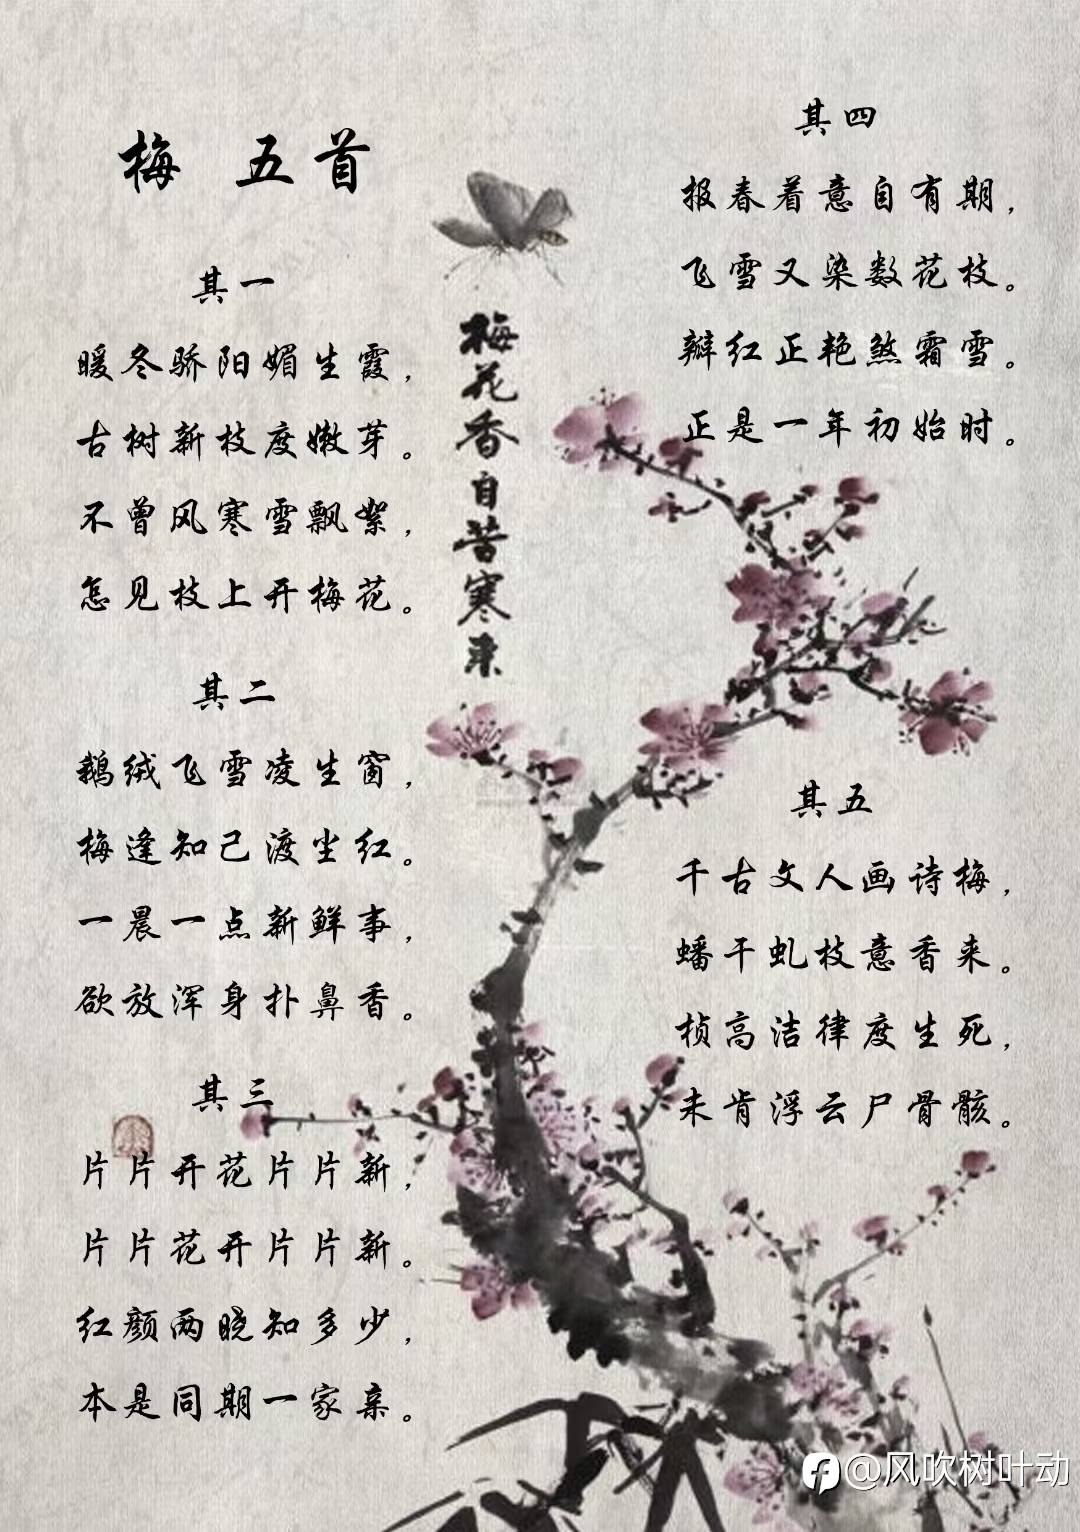 梅 五首
其一
暖冬骄阳媚生霞，
古树新枝度嫩芽。
不曾风寒雪飘絮，
怎见枝上开梅花。
其二
鹅绒飞雪凌生窗，
梅逢知己渡尘红。
一晨一点新鲜事，
欲放浑身扑鼻香。
其三
片片开花片片新，
片片花开片片新。
红颜两晓知多少，
本是同期一家亲。
梅花香自苦寒来
其四
报春着意自有期，
飞雪又染数花枝。
瓣红正艳煞霜雪。
正是一年初始时。
其五
千古文人画诗梅，
蟠干虬枝意香来。
桢高洁律度生死，
未肯浮云尸骨骸。
@风吹树叶动